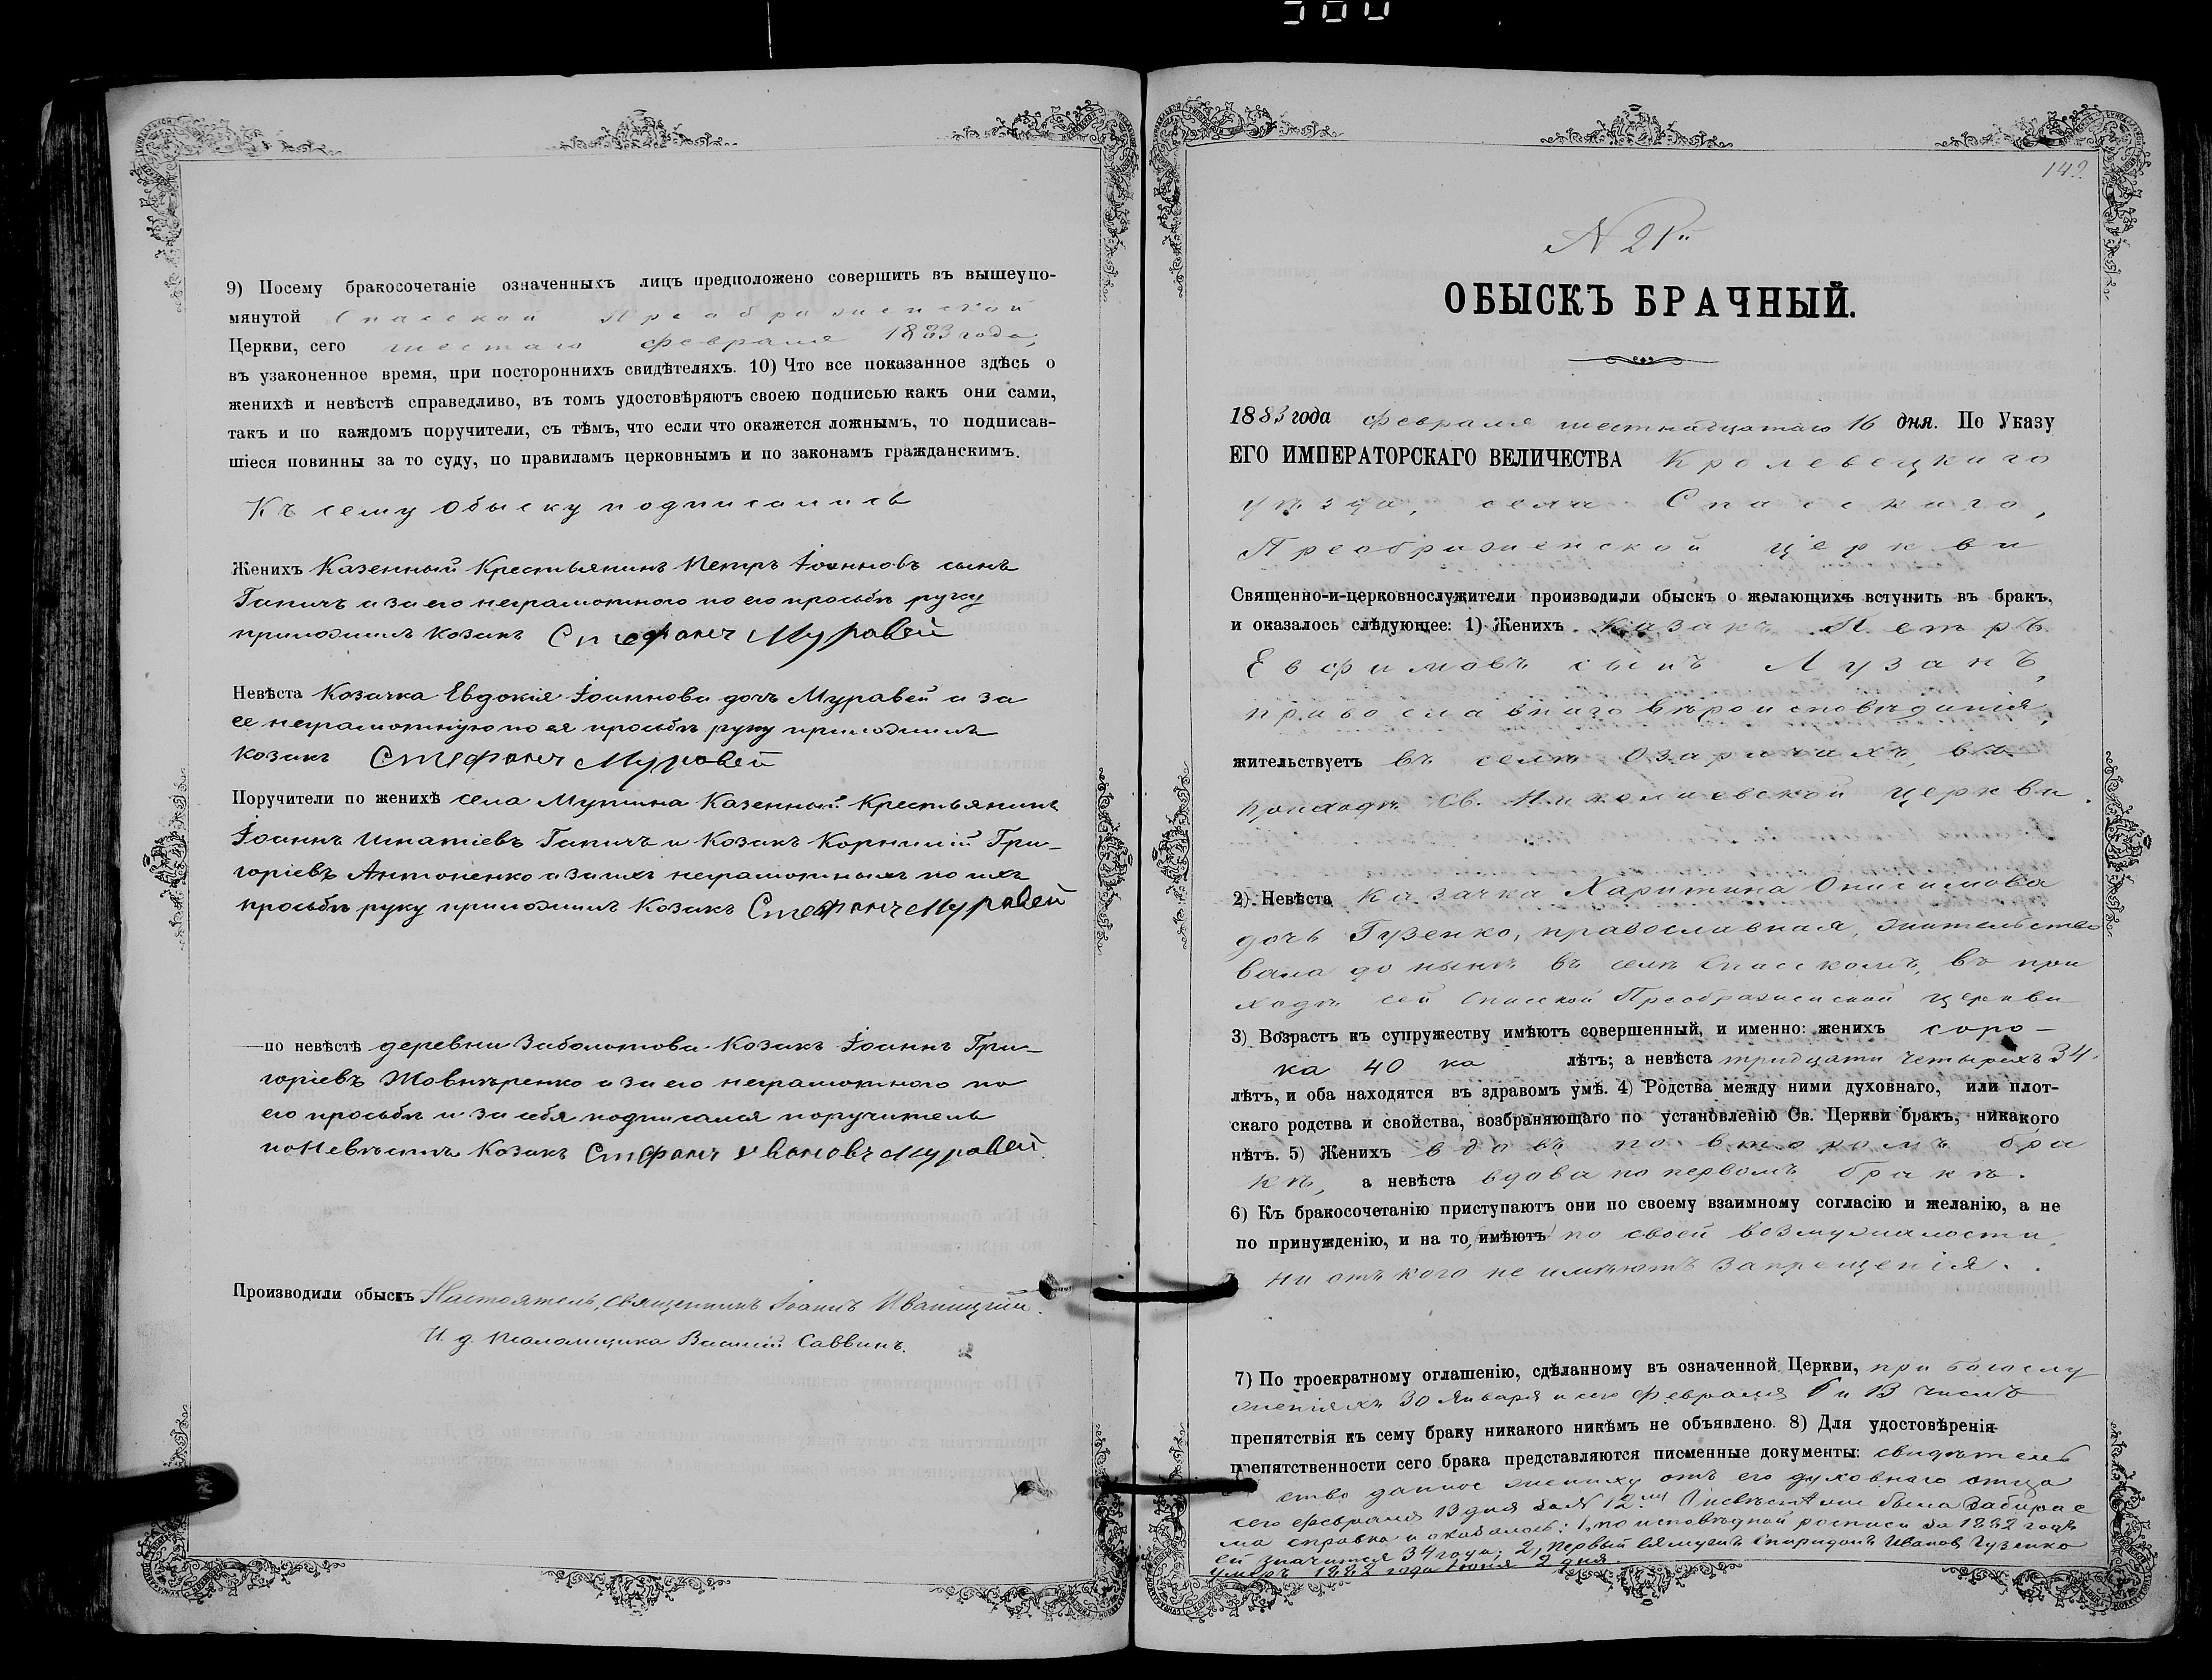 9) Посему бракосочетаніе означенныхъ лицъ предположено совершить въ вышеупо-
мянутой Спасской Преображенской
Церкви, сего шестаго февраля 1883 года,
въ узаконенное время, при постороннихъ свидѣтеляхъ. 10) Что все показанное здѣсь о
женихѣ и невѣстѣ справедливо, въ томъ удостовѣряютъ своею подписью какъ они сами,
такъ и по каждомъ поручители, съ тѣмъ, что если что окажется ложнымъ, то подписав-
шіеся повинны за то суду, по правиламъ церковнымъ и по законамъ гражданскимъ.
Къ сему обыску подписались
Женихъ Казенный Крестьянинъ Петръ Іоанновъ сынъ
Гапичъ а за его неграмотного по его просьбѣ руку
приложилъ козакъ Стефанъ Муравей
Невѣста Козачка Евдокія Іоаннова дочь Муравей а за
ее неграмотную по ея просьбѣ руку приложилъ
козакъ Стефанъ Муравей
Поручители по женихѣ села Мутина Казенный Крестьянинъ
Іоаннъ Игнатіевъ Гапичъ и Козакъ Корнилій Гри-
горіевъ Антоненко а за ихъ неграмотныхъ по ихъ
просьбѣ руку приложилъ Козакъ Стефанъ Муравей
—по невѣстѣ деревни Заболотова Козакъ Іоаннъ Гри-
горіевъ Жовнѣренко а за его неграмотного по
его просьбѣ и за себя подписался поручитель
по Невѣстѣ Козакъ Стефанъ Ивановъ Муравей.
Производили обыскъ Настоятель, священникъ Іоаннъ Иваницкій.
И. д. Псаломщика Василій Саввинъ.
142
N 21й
ОБЫСКЪ БРАЧНЫЙ.
1883 года февраля шестнадцатаго 16 дня. По Указу
ЕГО ИМПЕРАТОРСКАГО ВЕЛИЧЕСТВА Кролевецкаго
уѣзда, села Спасскаго,
Преображенской церкви
Священно-и-церковнослужители производили обыскъ о желающихъ вступить въ бракъ,
и оказалось слѣдующее: 1) Женихъ Казакъ Петръ
Евфимовъ сынъ Лузанъ,
православнаго вѣроисповѣданія,
жительствуетъ въ селѣ Озаричахъ, въ
приходѣ Св. Николаевской церкви.
2) Невѣста Казачка Харитина Онисимова
дочь Гузенко, православная, жительство
вала до нынѣ въ селѣ Спасскомъ, въ при
ходѣ сей Спасской Преображенской церкви
3) Возрастъ къ супружеству имѣютъ совершенный, и именно: женихъ соро—
ка 40 ка лѣтъ; а невѣста тридцати четырехъ 34.
лѣтъ, и оба находятся въ здравомъ умѣ. 4) Родства между ними духовнаго, или плот-
скаго родства и свойства, возбраняющаго по установленію Св. Церкви бракъ, никакого
нѣтъ. 5) Женихъ вдовъ по второмъ бра
кѣ, а невѣста вдова по первомъ бракѣ.
6) Къ бракосочетанію приступаютъ они по своему взаимному согласію и желанію, а не
по принужденію, и на то, (имѣютъ) по своей возмужалости,
ни отъ кого не имѣютъ запрещенія.
7) По троекратному оглашенію, сдѣланному въ означенной Церкви, при богослу
женіяхъ 30 Января и сего февраля 6 и 13 числъ
препятствія къ сему браку никакого никѣмъ не объявлено. 8) Для удостовѣренія
препятственности сего брака представляются писменные документы: свидѣтель
ство данное жениху отъ его духовнаго отца
сего февраля 13 дня за N 12мъ О невѣстѣ же была
ма справка и оказалось: 1, по исповѣдной росписи за 1882 годъ
ей значится 34 года; 2, первый ея мужъ Спиридонъ Ивановъ Гузенко
умеръ 1882 года Іюня 2 дня.